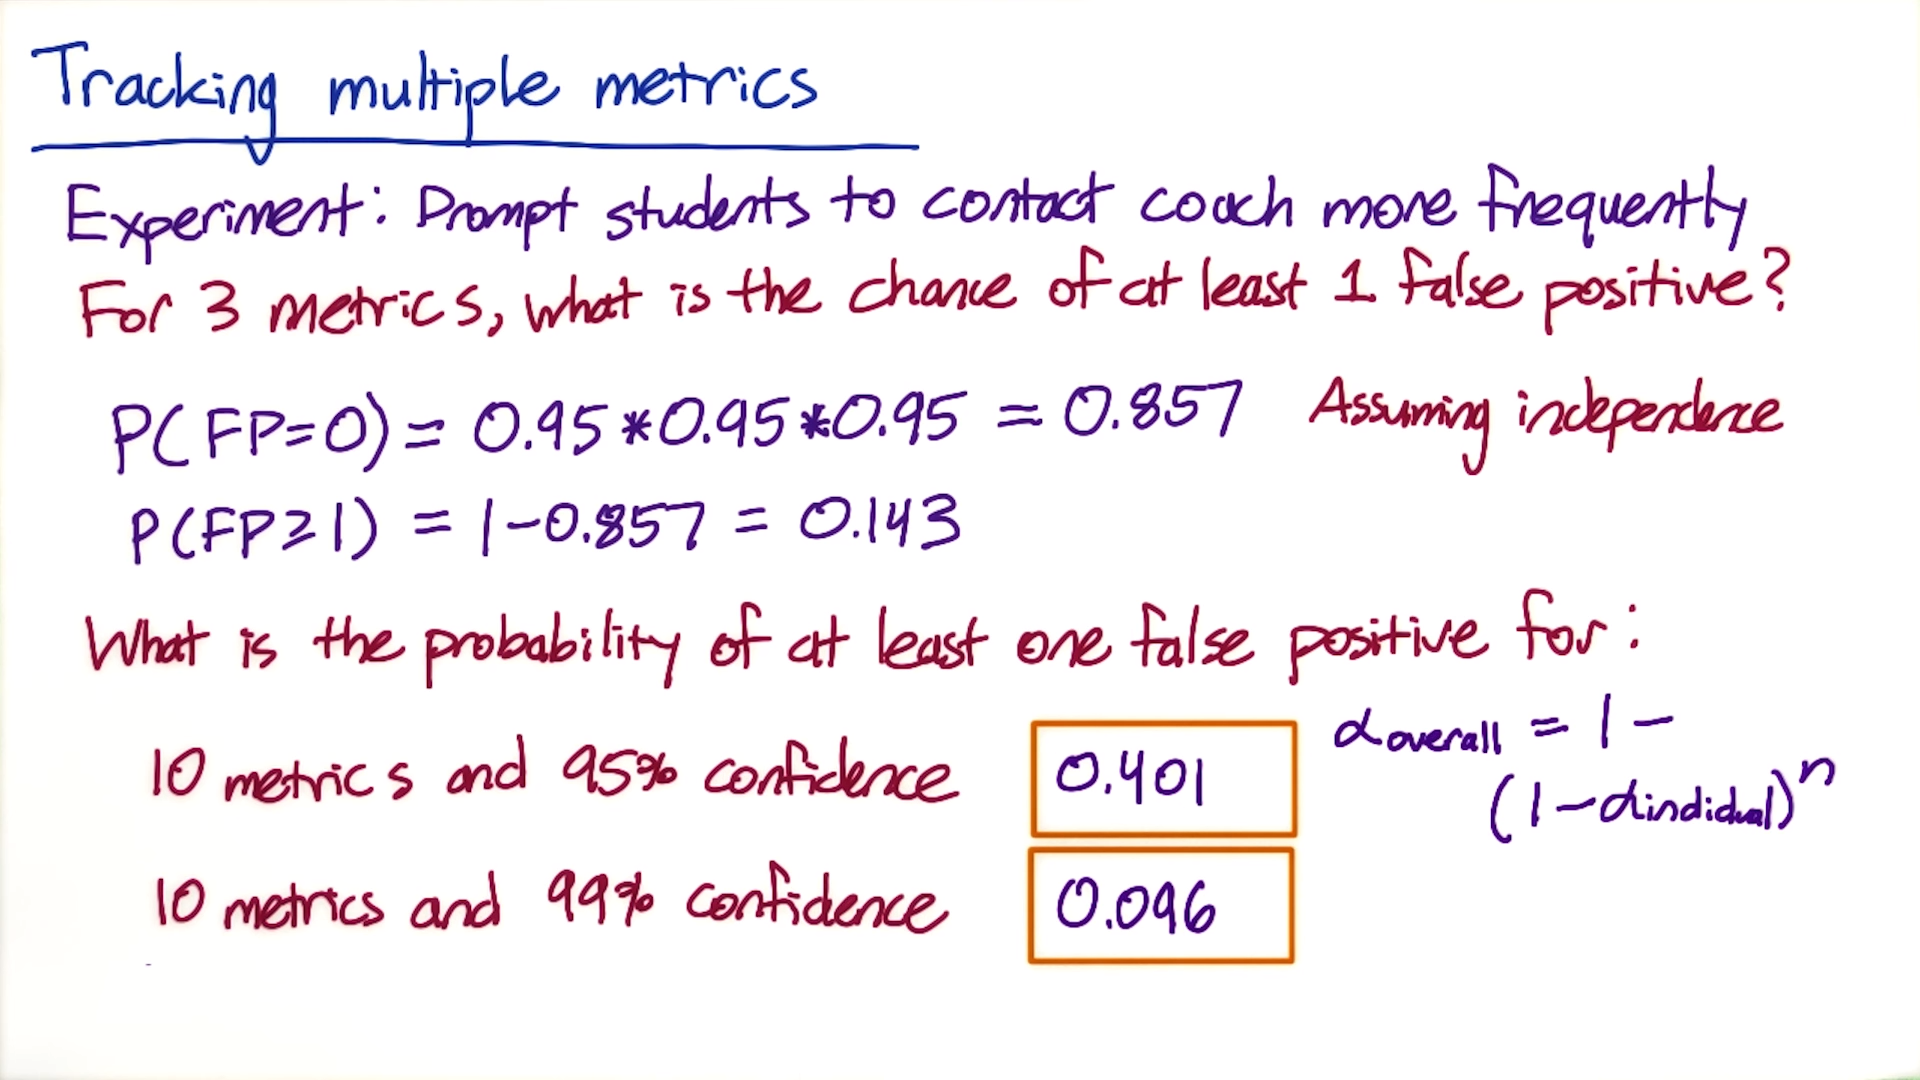 Tracking multiple metrics
Experiment: Prompt students to contact coach more frequently
For 3 metrics, what is the chance of at least 1 false positive?
P(FP=0) = 0.95*0.95*0.95 = 0.857 Assuming independence
P(FP≥1) = 1-0.857 = 0.143
What is the probability of at least one false positive for:
10 metrics and 95% confidence 0.401
αoverall = 1 -
(1-αindidual)^n
10 metrics and 99% confidence 0.096